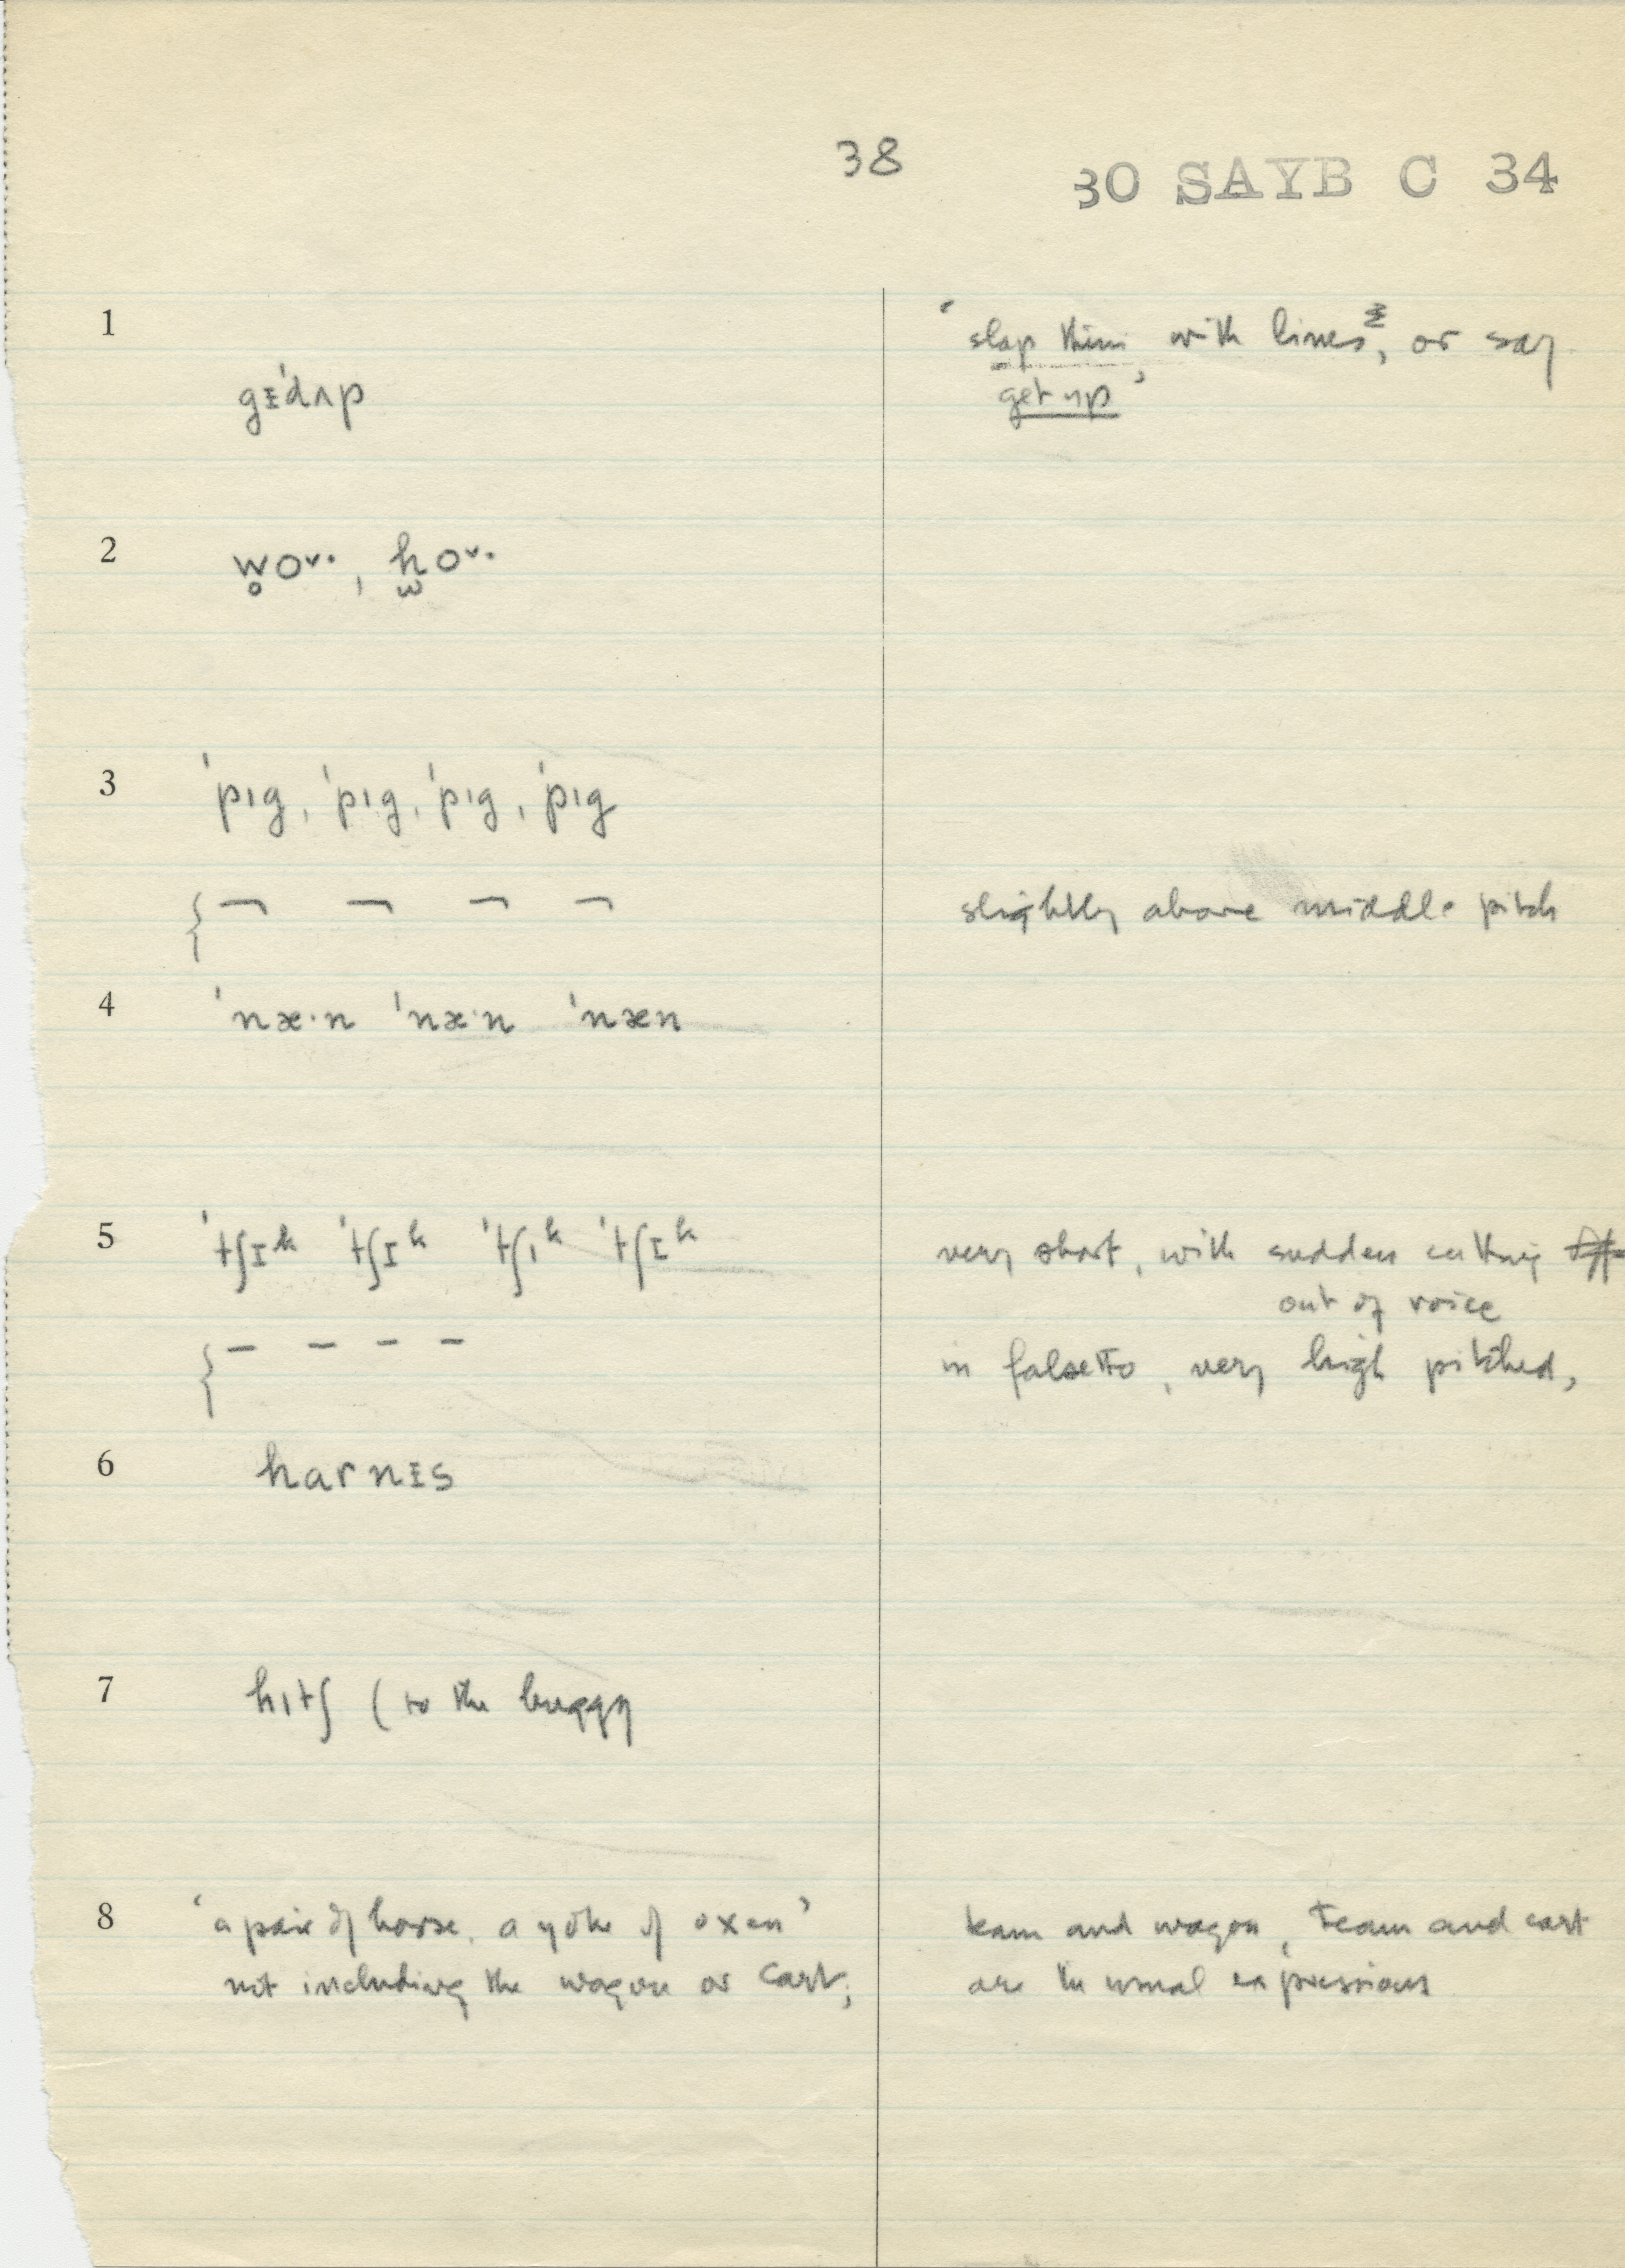 38
30 SAYB C 34
1
' slap them with lines, or say
gɪ'dʌp
get up '
2
w̥oᵛ· , h̫oᵛ·
3
'pɪg, 'pɪg, 'pɪg, 'pɪg
{ ¬ ¬ ¬ ¬
slightly above middle pitch
4
'næ·n 'næ·n 'næn
5
'tʃɪᵏ 'tʃɪᵏ 'tʃɪᵏ 'tʃɪᵏ
very short, with sudden cutting
out of voice
{ – – – –
in falsetto, very high pitched,
6
harnɪs
7
hɪtʃ ( to the buggy
8
' a pair of horse, a yoke of oxen '
team and wagon, team and cart
not including the wagon or cart;
are the usual expressions